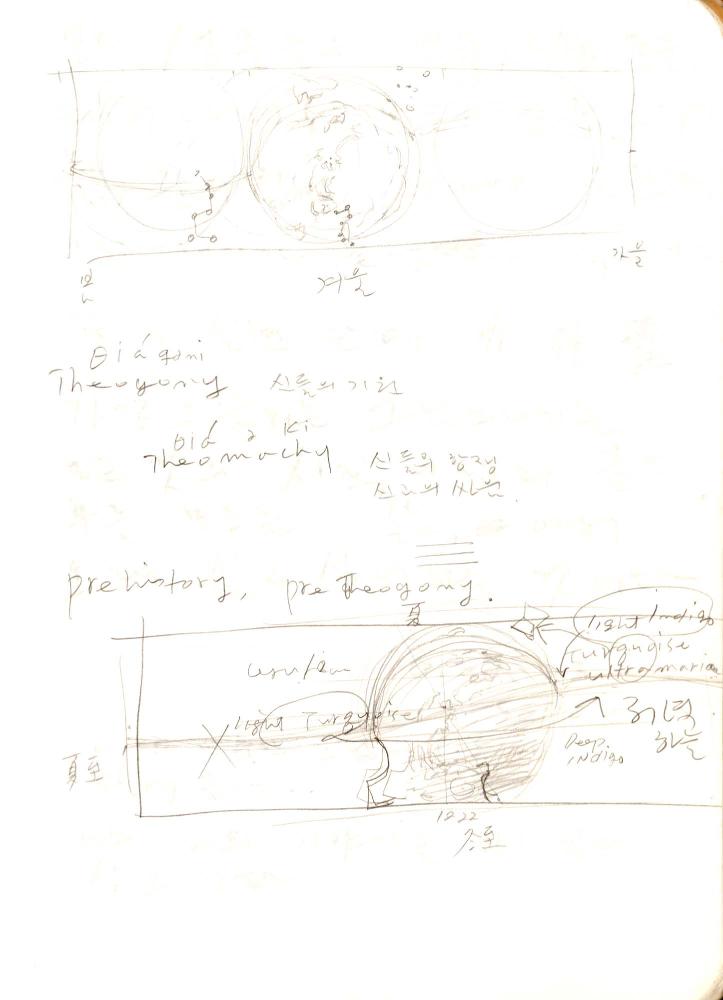 봄
겨울
가을
Theogony 신들의 기원
Theomachy 신들의 항쟁
신들의 싸움.
prehistory, pre Theogony.
夏
light Indigo
Turquoise
ultra marin
light Turquoise
저녁
하늘
Deep
INdigo
夏至
12 22
冬至